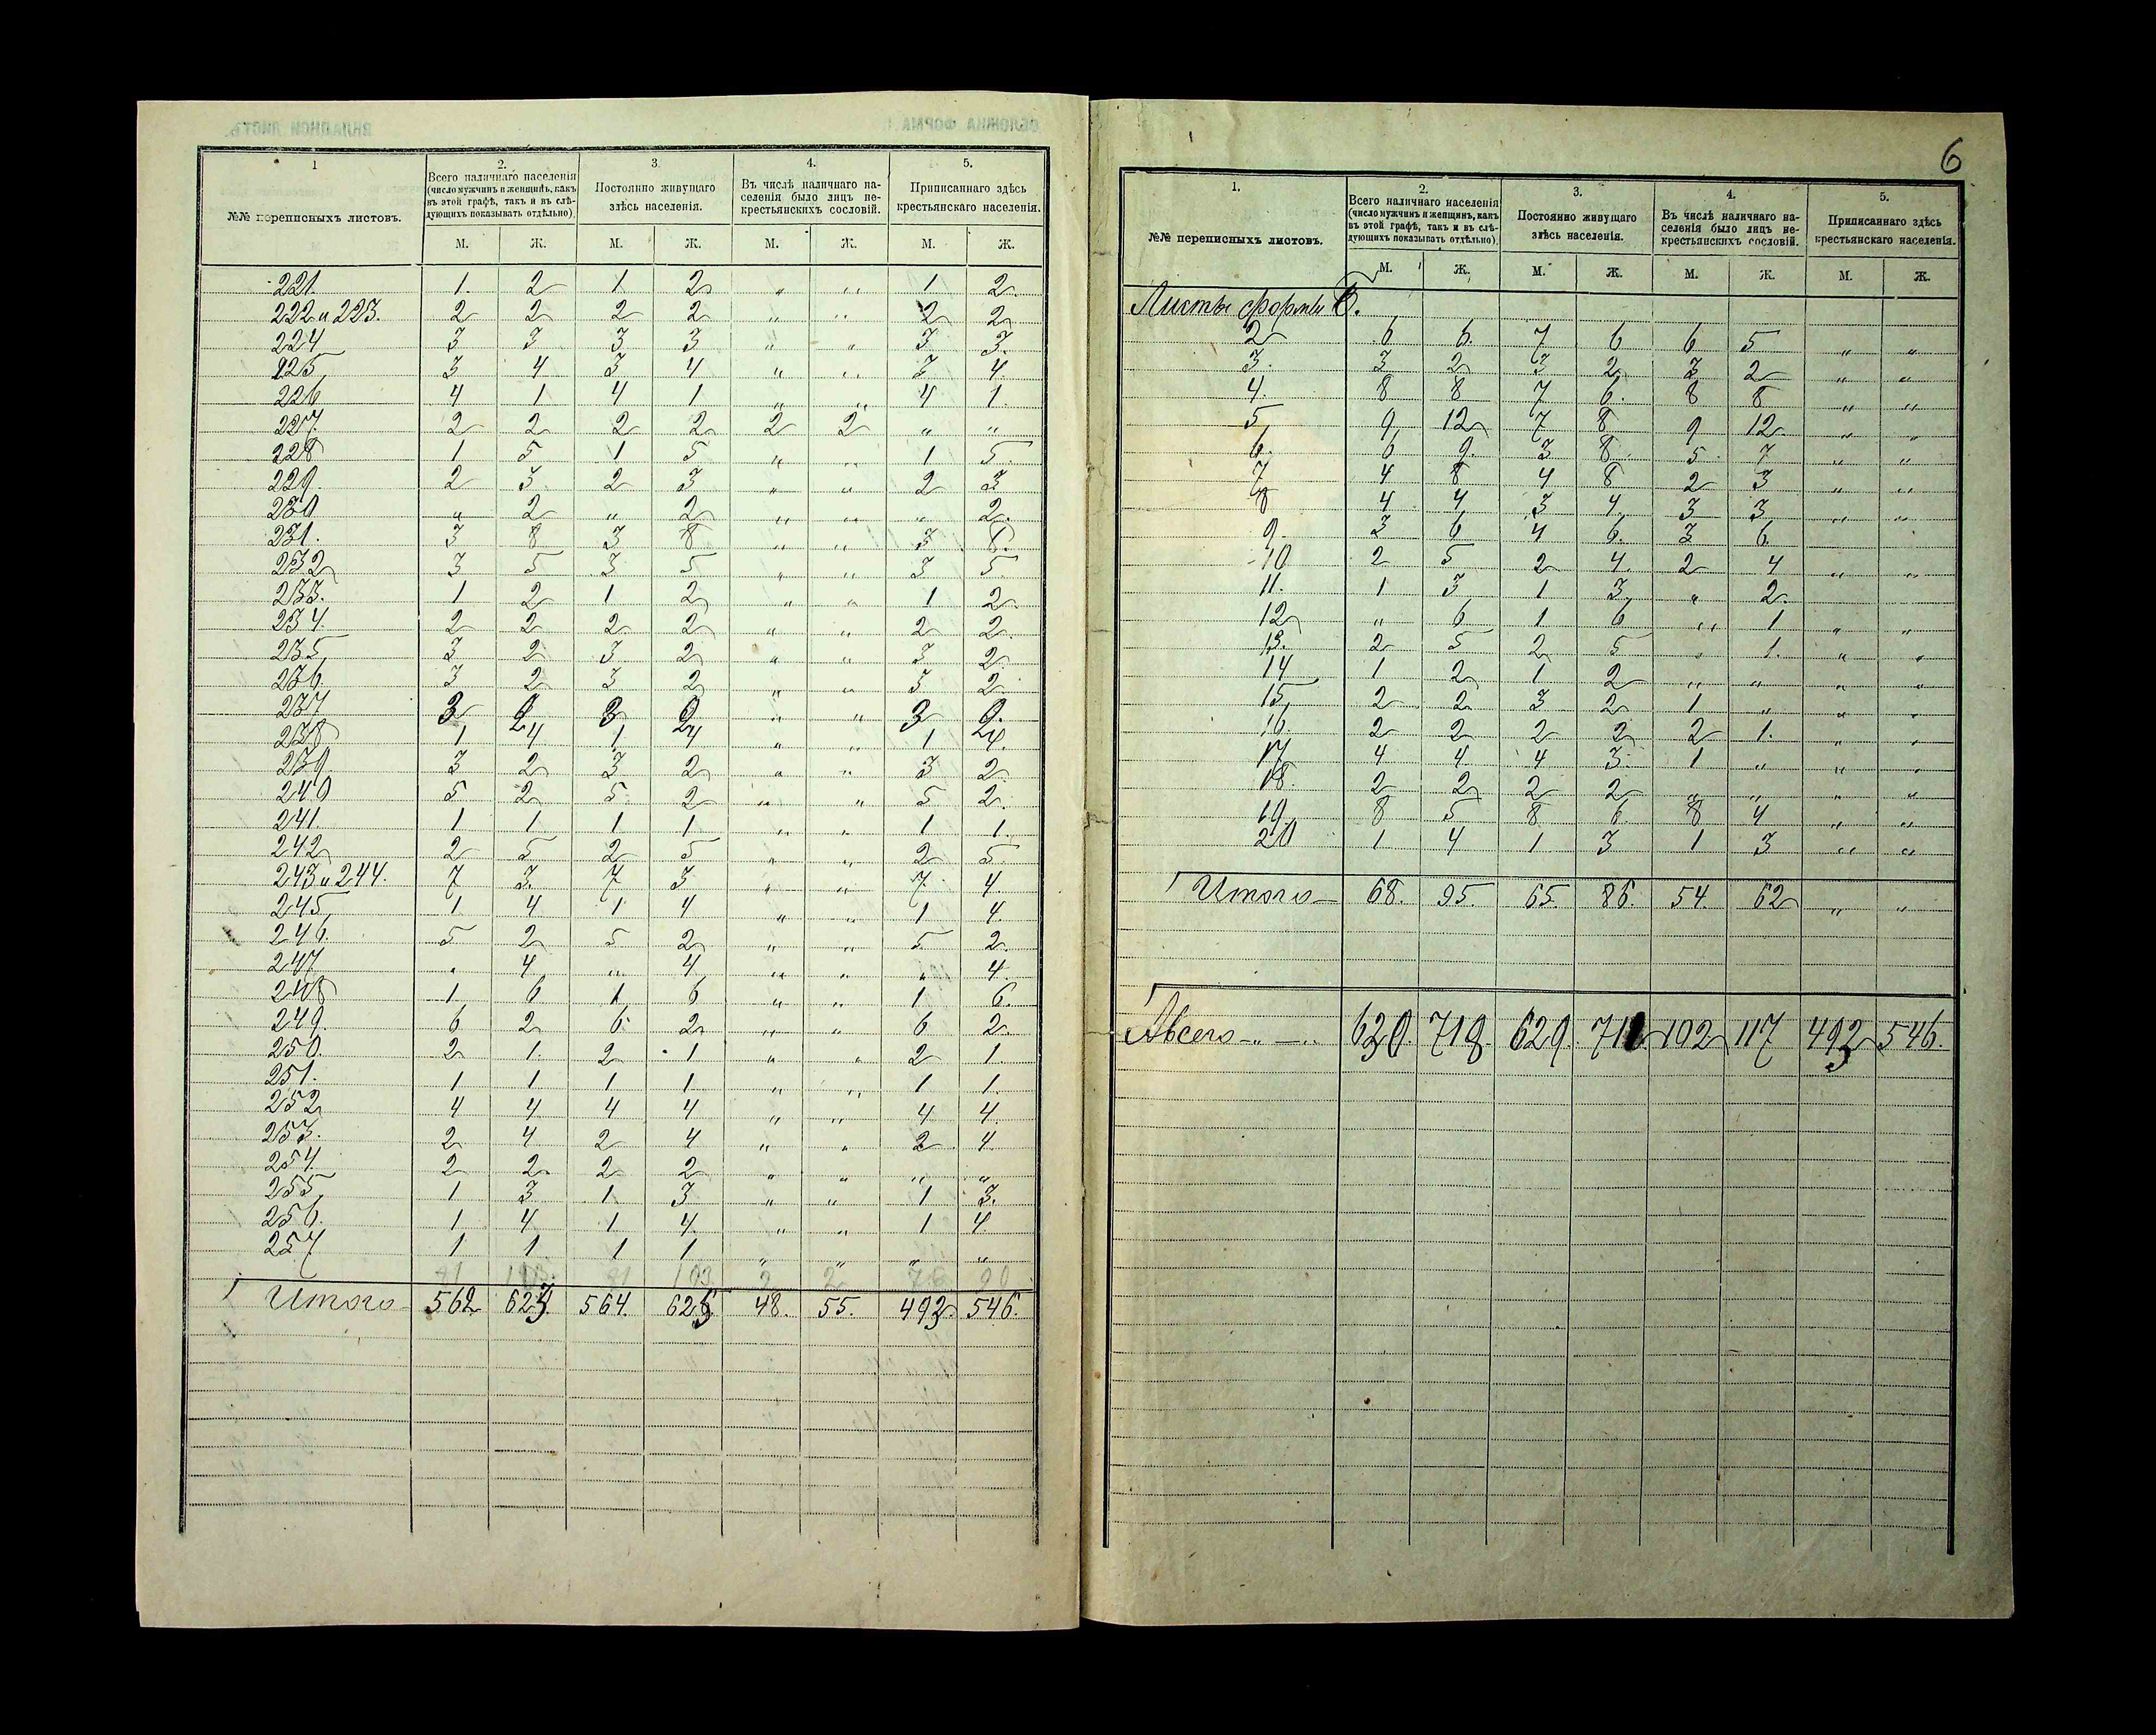 1 2. 3 4. 5.
№№ переписныхъ листовъ. Всего наличнаго населенія (число мужчинъ и женщинъ, какъ въ этой графѣ, такъ и въ слѣдующихъ показывать отдѣльно). Постоянно живущаго здѣсь населенія. Въ числѣ наличнаго населенія было лицъ не-крестьянскихъ сословій. Приписаннаго здѣсь крестьянскаго населенія.
М. Ж. М. Ж. М. Ж. М. Ж.
221. 1. 2 1 2 „ „ 1 2
222 и 223. 2 2 2 2 „ „ 2 2
224 3 3 3 3 „ „ 3 3.
225 3 4 3 4 „ „ 3 4.
226 4 1 4 1 „ „ 4 1.
227. 2 2 2 2 2 2 „ „
228 1 5 1 5 „ „ 1 5.
229. 2 3 2 3 „ „ 2 3
230 „ 2 „ 2 „ „ „ 2.
231. 3 8 3 8 „ „ 3 8.
232 3 5 3 5 „ „ 3 5.
233. 1 2 1 2 „ „ 1 2.
234. 2 2 2 2 „ „ 2 2.
235 3 2 3 2 „ „ 3 2.
236. 3 2 3 2 „ „ 3 2
237 3 2 3 2 „ „ 3 2.
238 1 4 1 4 „ „ 1 4.
239. 3 2 3 2 „ „ 3 2.
240 5 2 5 2 „ „ 5 2.
241. 1 1 1 1 „ „ 1 1.
242 2 5 2 5 „ „ 2 5.
243 и 244. 7 3. 7 3 „ „ 7 4.
245 1 4 1 4 „ „ 1 4.
246. 5 2 5 2 „ „ 5 2.
247 „ 4 „ 4 „ „ „ 4.
248 1 6 1 6 „ „ 1 6.
249. 6 2 6 2 „ „ 6 2.
250. 2 1. 2 1 „ „ 2 1.
251. 1 1 1 1 „ „ 1 1.
252 4 4 4 4 „ „ 4 4.
253. 2 4 2 4 „ „ 2 4.
254. 2 2 2 2 „ „ „ „
255 1 3 1 3 „ „ 1 3.
256. 1 4 1 4. „ „ 1 4.
257 1 1. 1 1 „ „ „ „
Итого 562 623. 564. 625 48. 55. 492. 546.
6
1. 2. 3. 4. 5.
№№ переписныхъ листовъ. Всего наличнаго населенія (число мужчинъ и женщинъ, какъ въ этой графѣ, такъ и въ слѣдующихъ показывать отдѣльно). Постоянно живущаго здѣсь населенія. Въ числѣ наличнаго населенія было лицъ не-крестьянскихъ сословій. Приписаннаго здѣсь крестьянскаго населенія.
М. Ж. М. Ж. М. Ж. М. Ж.
Листы формы Б.
2 6 6. 7 6 6 5 „ „
3. 3 2 3 2 3 2 „ „
4. 8 8 7 6. 8 8 „ „
5 9 12 7 8 9 12. „ „
6. 6 9. 3 8. 5. 7 „ „
7 4 8 4 8 2 3 „ „
8 4 4 3 4. 3 3 „ „
9. 3 6 4 6. 3 6.
10 2 5 2 4. 2 4 „ „
11. 1 3 1 3 „ 2.
12 „ 6 1 6 „ 1 „ „
13. 2 5 2 5 „ 1. „ „
14 1 2 1 2 „ „ „ „
15 2 2. 3 2 1 „ „ „
16. 2 2 2 2 2 1. „ „
17. 4 4 4 3. 1 „ „ „
18. 2 2 2 2 „ „ „ „
19. 8 5 8 6. 8 4 „ „
20 1 4 1 3 1 3 „ „
Итого 68. 95. 65. 86. 54. 62 „ „
Авсего 630. 718. 629. 711. 102 117 492 546.